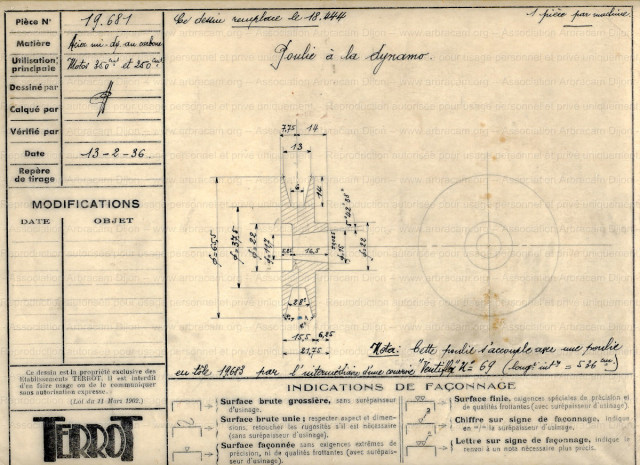 Pièce N° 19.681
Matière Acier mi-dx au carbone
Utilisation principale Motos 350cm3 et 250cm3
Dessiné par
Calqué par
Vérifié par
Date 13-2-36.
Repère de tirage
MODIFICATIONS
DATE OBJET
Ce dessin est la propriété exclusive des
Etablissements TERROT, il est interdit
d'en faire usage ou de le communiquer
sans autorisation expresse.
(Loi du 31 Mars 1902.)
TERROT
Ce dessin remplace le 18.444
1 pièce par machine
Poulie à la dynamo.
7,75 14
13
6
14
5°42'35"
ϕ=65,5
ϕ=37,5
ϕ=22
5,25 16,5
ϕ=15
ϕ=22
28°
15,5 6,25
21,75
Nota: Cette poulie s'accouple avec une poulie
en tôle 19683 par l'intermédiaire d'une courroie "Ventiflex" N° 69 (longr intre = 536 mm)
INDICATIONS DE FAÇONNAGE
Surface brute grossière, sans surépaisseur
d'usinage.
Surface brute unie; respecter aspect et dimen-
sions, retoucher les rugosités s'il est nécessaire
(sans surépaisseur d'usinage).
Surface façonnée sans exigences extrêmes de
précision, ni de qualités frottantes (avec surépais-
seur d'usinage).
Surface finie, exigences spéciales de précision
et de qualités frottantes (avec surépaisseur d'usinage).
Chiffre sur signe de façonnage, indique
en m/m la surépaisseur d'usinage.
Lettre sur signe de façonnage, indique le
renvoi à un nota nécessaire plus précis.